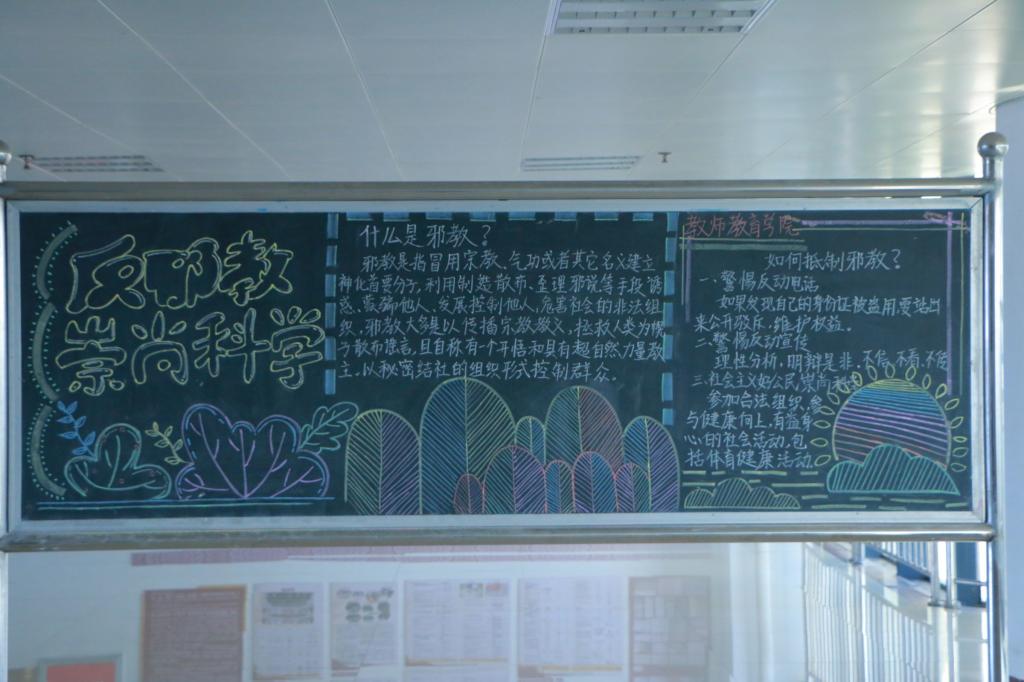 反邪教
崇尚科学
什么是邪教？
邪教是指冒用宗教、气功或者其它名义建立
神化首要分子,利用制造散布、歪理邪说等手段诱
惑、蒙骗他人,发展控制他人,危害社会的非法组
织,邪教大多是以传播宗教教义,拯救人类为幌
子散布谣言,且自称有一个开悟和具有超自然力量教
主,以秘密结社的组织形式控制群众。
教师教育学院
如何抵制邪教？
一、警惕反动电话
如果发现自己的身份证被盗用,要站出
来公开驳斥,维护权益。
二、警惕反动宣传
理性分析,明辨是非,不信、不看、不传
三、社会主义好公民,崇尚
参加合法组织,参
与健康向上,有益身
心的社会活动,包
括体育健康活动